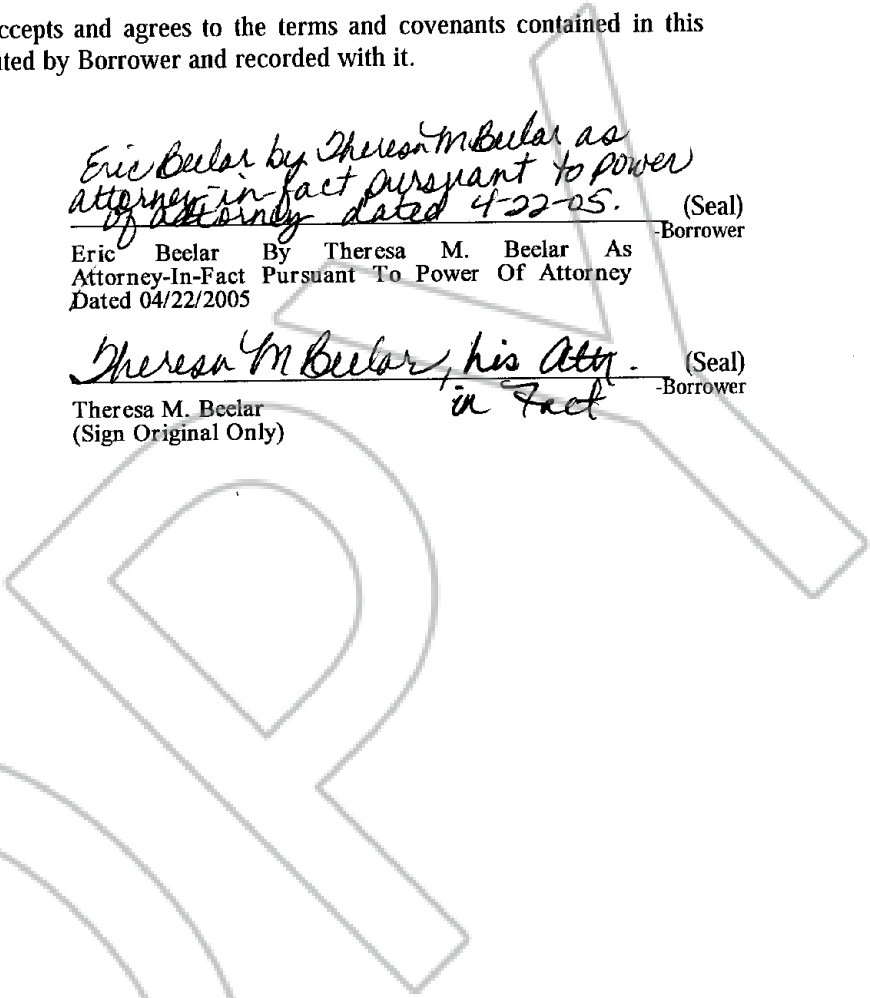 ccepts and agrees to the terms and covenants contained in this
ted by Borrower and recorded with it.
Eric Beelar by Theresa M Beelar as
attorney-in-fact pursuant to power
of attorney dated 4-22-05. (Seal)
-Borrower
Eric Beelar By Theresa M. Beelar As
Attorney-In-Fact Pursuant To Power Of Attorney
Dated 04/22/2005
Theresa M Beelar, his Attn. (Seal)
in Fact -Borrower
Theresa M. Beelar
(Sign Original Only)
PY